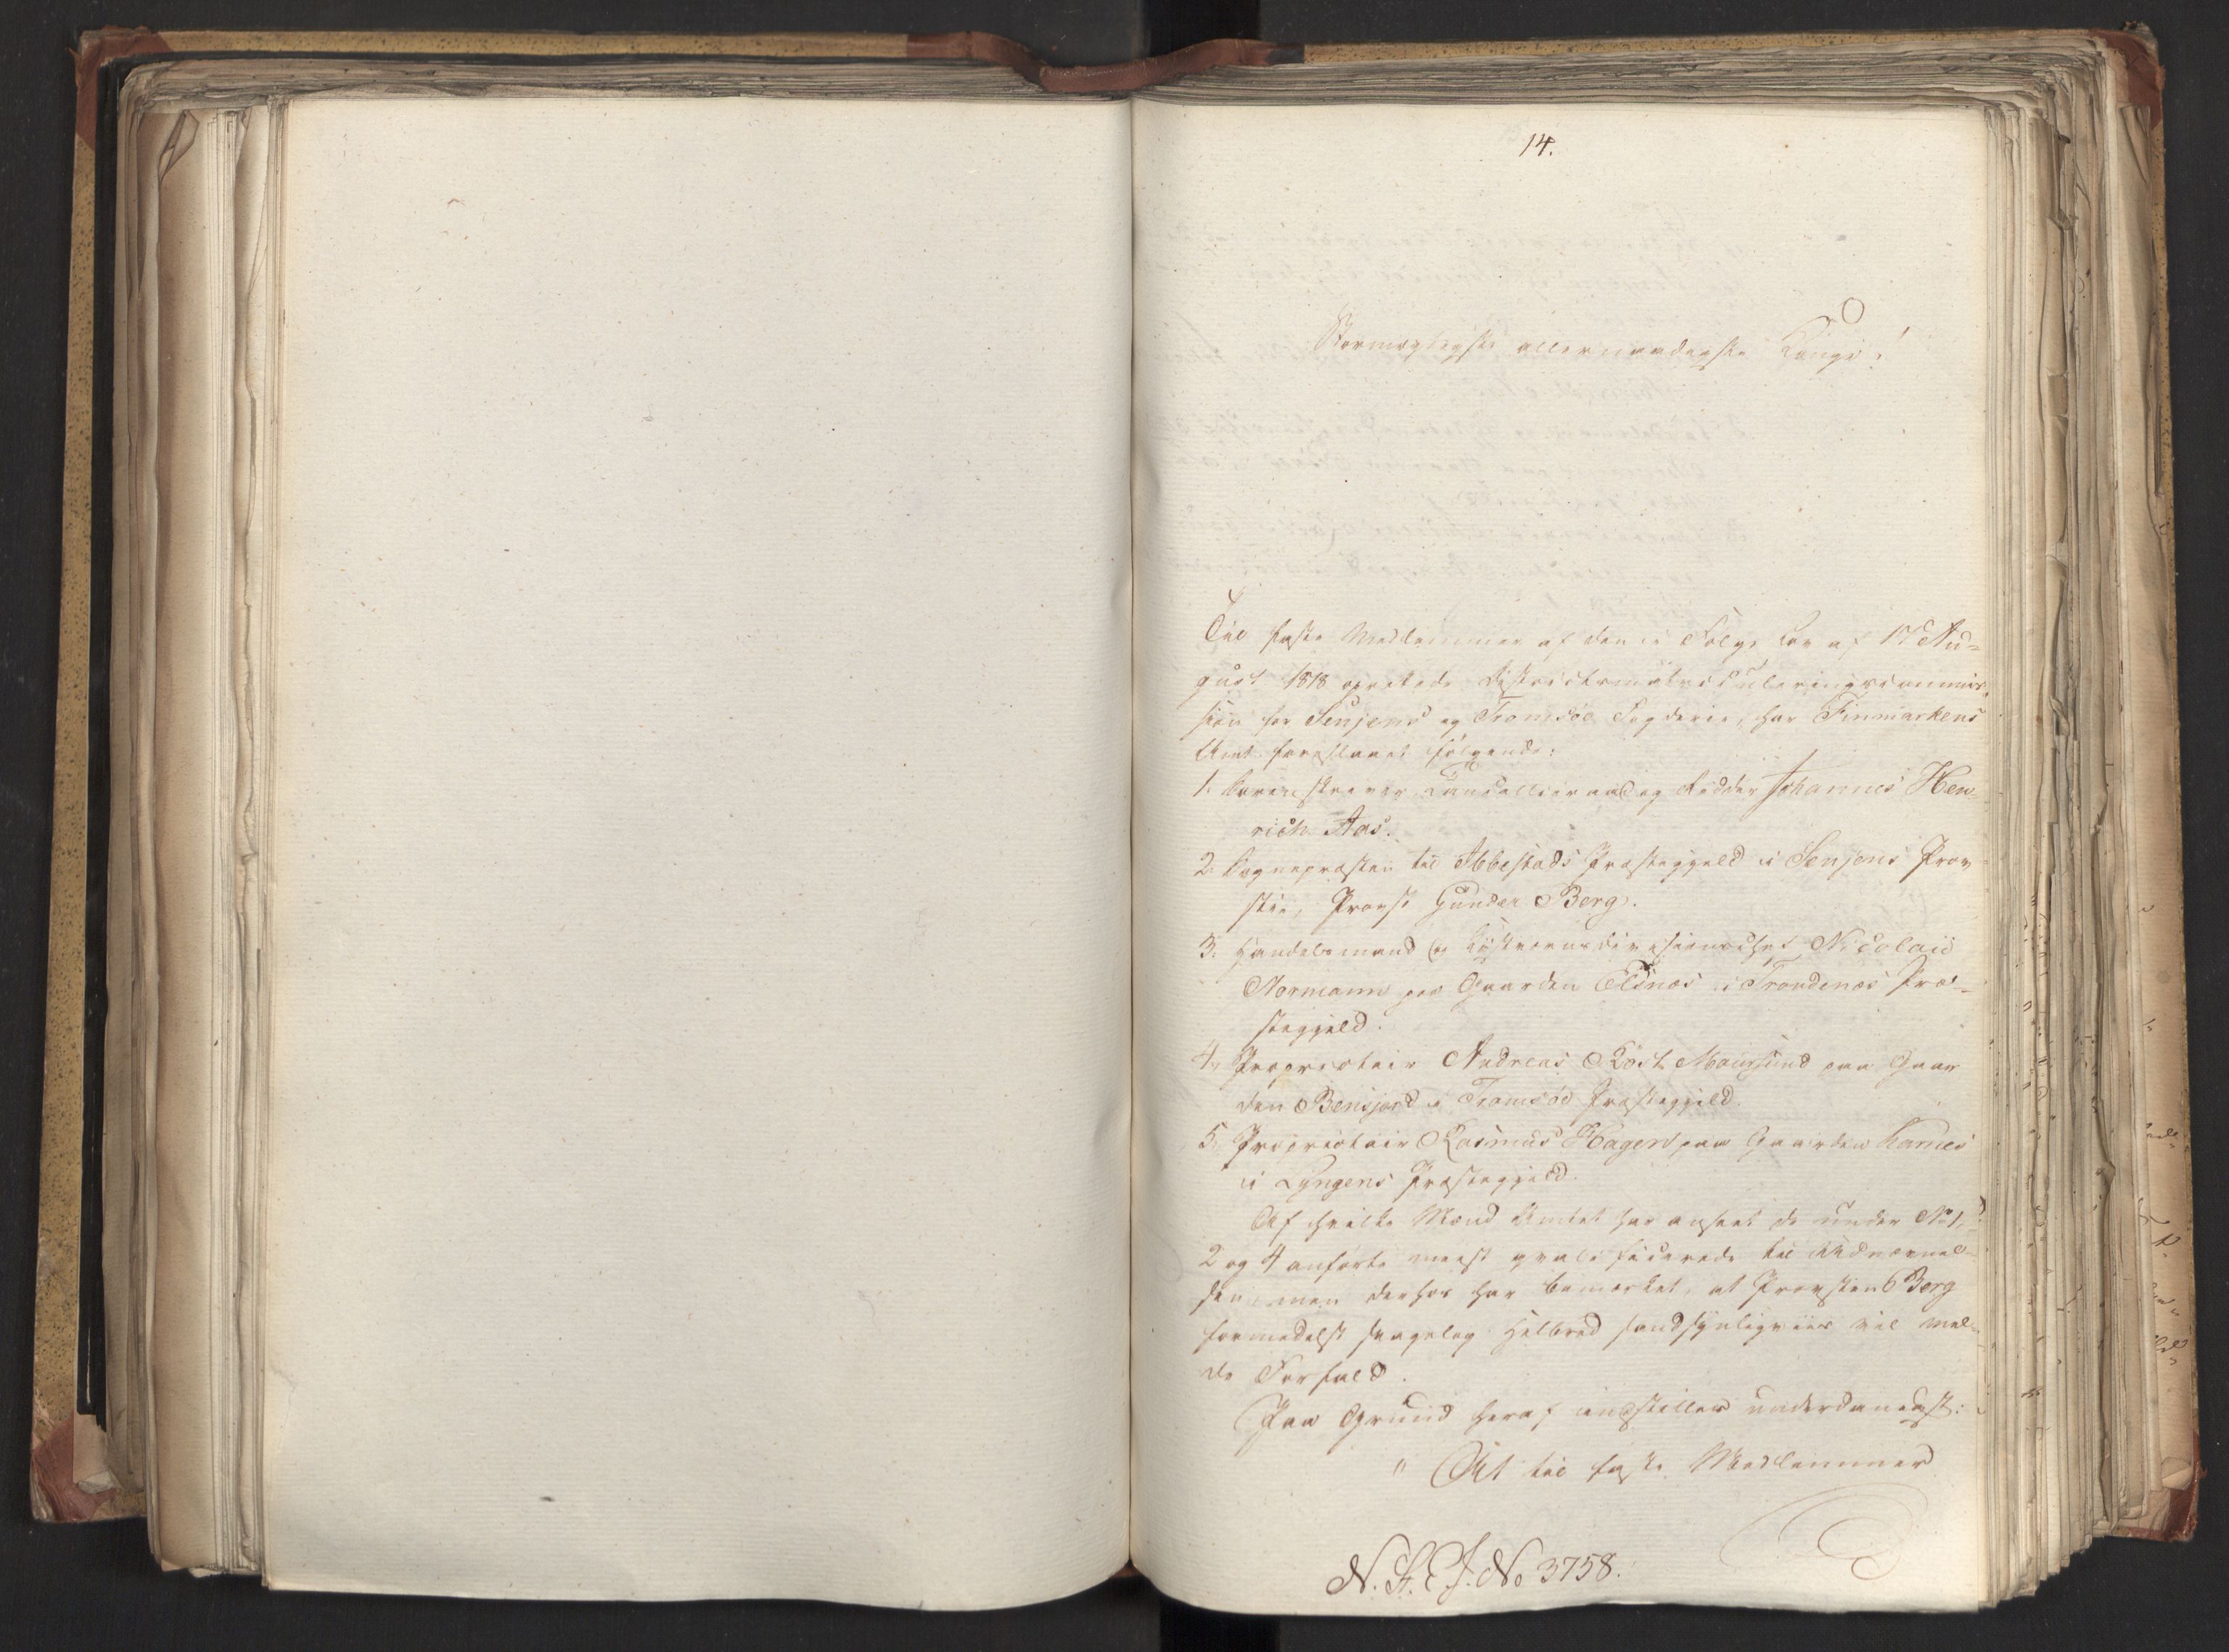 14.
Stormægtigste allernaadigste Konge!
Til faste Medlemmer af den i Følge Lov af 17 Au=
gust 1818 oprettede Districtsmatriculeringscommis=
sion for Senjens og Tromsöe Fogderie, har Finmarkens
Amt foreslaaet følgende:
1. Sorenskriver, Cancellieraad og Ridder Johannes Hen=
rich Aas.
2. Sognepræsten til Ibbestads Præstegjeld i Senjens Prov
stie, Provst Gunder Berg.
3. Handelsmand og Kystværnsdivisionschef Nicolaii
Normann paa Gaarden Elsnæs i Trondenæs Præ=
stegjeld.
4. Proprietair Andreas Röst Moursund paa Gaar
den Bensjord i Tromsöe Præstegjeld.
5. Proprietair Rasmus Hagen paa Gaarden Karnes
i Lyngens Præstegjeld.
Af hvilke Mænd Amtet har anseet de under No 1,
2 og 4 anførte meest qvalificerede til Udnævnel=
sen, men derhos har bemærket, at Provsten Berg
formedelst svagelig Helbred sandsynligviis vil mel=
de Forfald.
Paa Grund heraf indstilles underdanigst:
" At til faste Medlemmer
N. St. C. J. No 3758.